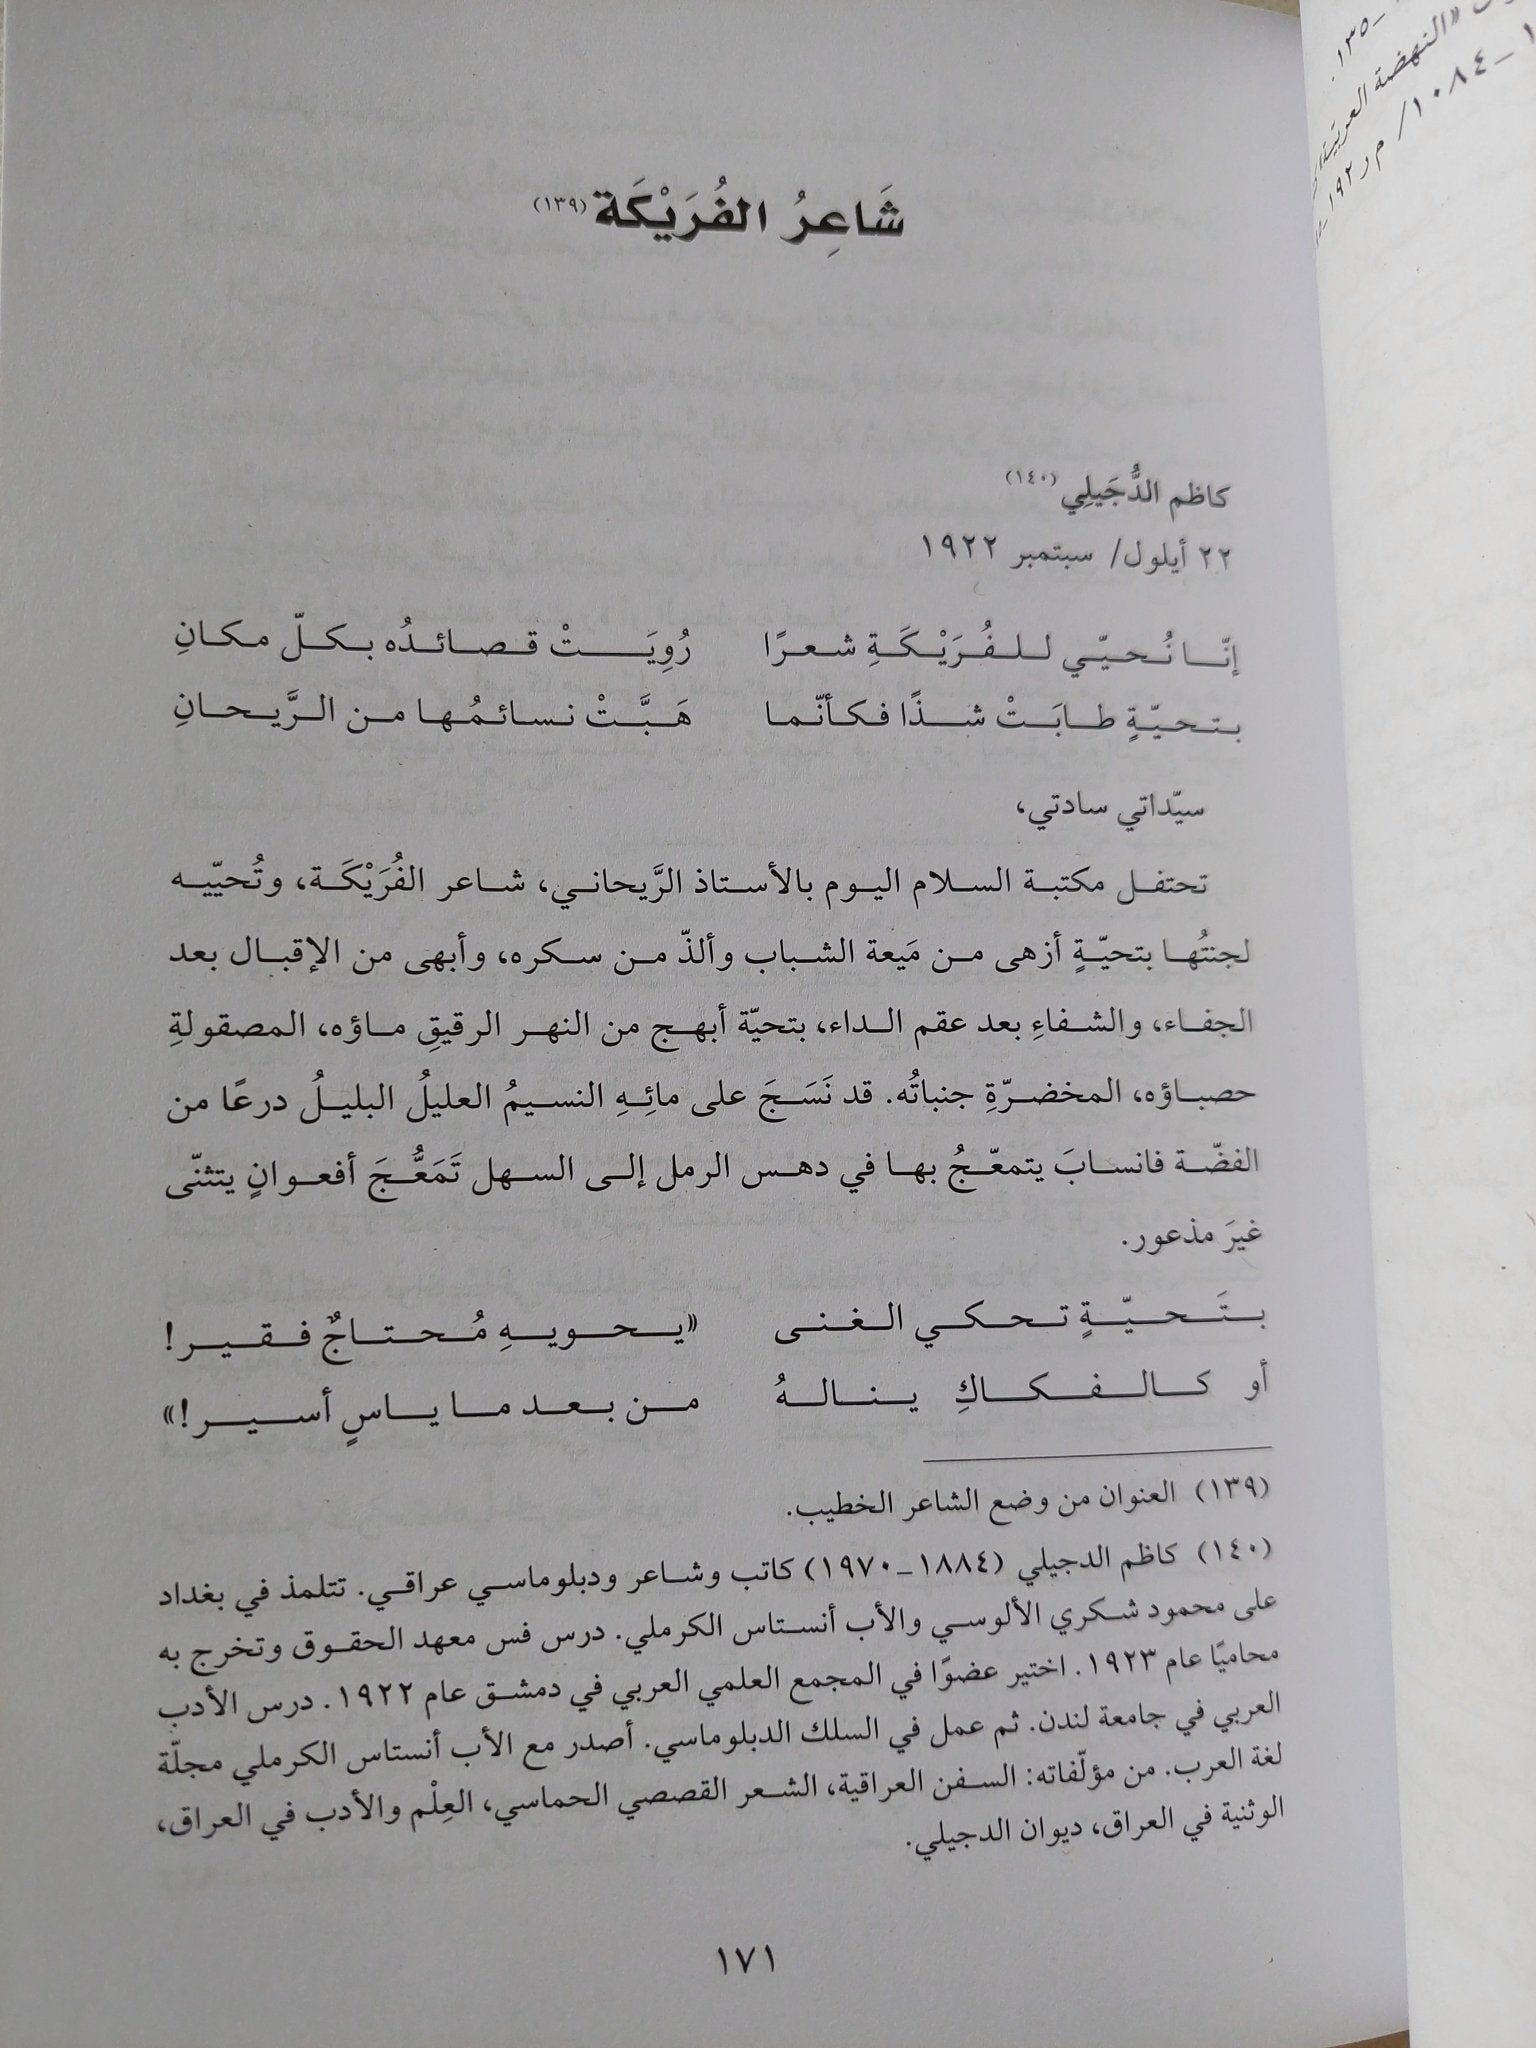 شَاعِرُ الفُرَيْكَة (١٣٩)
كاظم الدُّجَيلِي (١٤٠)
٢٢ أيلول/ سبتمبر ١٩٢٢
إنّا نُحيّي للفُرَيْكَةِ شعرًا رُوِيَتْ قصائدُه بكلّ مكانِ
بتحيّةٍ طابَتْ شذًا فكأنّما هَبَّتْ نسائمُها من الرَّيحانِ
سيّداتي سادتي،
تحتفل مكتبة السلام اليوم بالأستاذ الرَّيحاني، شاعر الفُرَيْكَة، وتُحيّيه
لجنتُها بتحيّةٍ أزهى من مَيعة الشباب وألذّ من سكره، وأبهى من الإقبال بعد
الجفاء، والشفاءِ بعد عقم الداء، بتحيّة أبهج من النهر الرقيقِ ماؤه، المصقولةِ
حصباؤه، المخضرّةِ جنباتُه. قد نَسَجَ على مائِهِ النسيمُ العليلُ البليلُ درعًا من
الفضّة فانسابَ يتمعّجُ بها في دهس الرمل إلى السهل تَمَعُّجَ أفعوانٍ يتثنّى
غيرَ مذعور.
بتَحيّةٍ تحكي الغنى «يحويهِ مُحتاجٌ فقير!
أو كالفكاكِ ينالهُ من بعد ما ياسٍ أسير!»
(١٣٩) العنوان من وضع الشاعر الخطيب.
(١٤٠) كاظم الدجيلي (١٨٨٤-١٩٧٠) كاتب وشاعر ودبلوماسي عراقي. تتلمذ في بغداد
على محمود شكري الألوسي والأب أنستاس الكرملي. درس فس معهد الحقوق وتخرج به
محاميًا عام ١٩٢٣. اختير عضوًا في المجمع العلمي العربي في دمشق عام ١٩٢٢. درس الأدب
العربي في جامعة لندن. ثم عمل في السلك الدبلوماسي. أصدر مع الأب أنستاس الكرملي مجلّة
لغة العرب. من مؤلّفاته: السفن العراقية، الشعر القصصي الحماسي، العِلْم والأدب في العراق،
الوثنية في العراق، ديوان الدجيلي.
١٧١
١٣٥.
«النهضة العربية